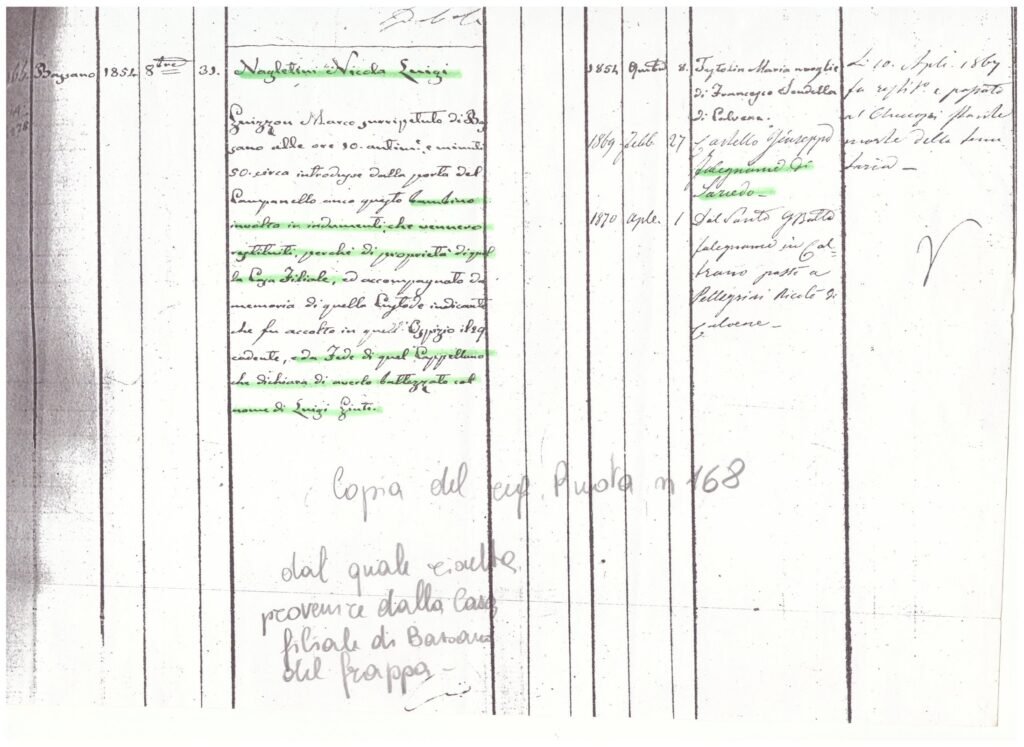 Bassano 1854 8bre 31. Nagletini Nicola Luigi
Guizzon Marco surripetuto di Bas
sano alle ore 10. antimᵉ. e minuti
50. circa introdusse dalla porta del
Campanello anco questo bambino
involto in indumenti, che vennero
restituiti, perchè di proprietà di quel
la Casa Filiale, ed accompagnato da
memoria di quello Custode indicante
che fu accolto in quell' Ospizio il 29
cadente, e da Fede di quel Cappellano
che dichiara di averlo battezzato col
nome di Luigi Giusti.
1854 9mbre 8. Testolin Maria moglie
di Francesco Sendella
di Calvene.
1869 Febb. 27 Castello Giuseppe
falegname di
Sarcedo
1870 Aple. 1 Dal Santo G Batta
falegname in Cal-
trano poscia a
Pellegrini Nicolò di
Calvene
Li 10. Aple. 1867
fu restito. e passato
al Chiuppani stante
morte della tenu
taria
Copia del reg. Ruota n 168
dal quale risulta
provenire dalla Casa
filiale di Bassano
del Grappa